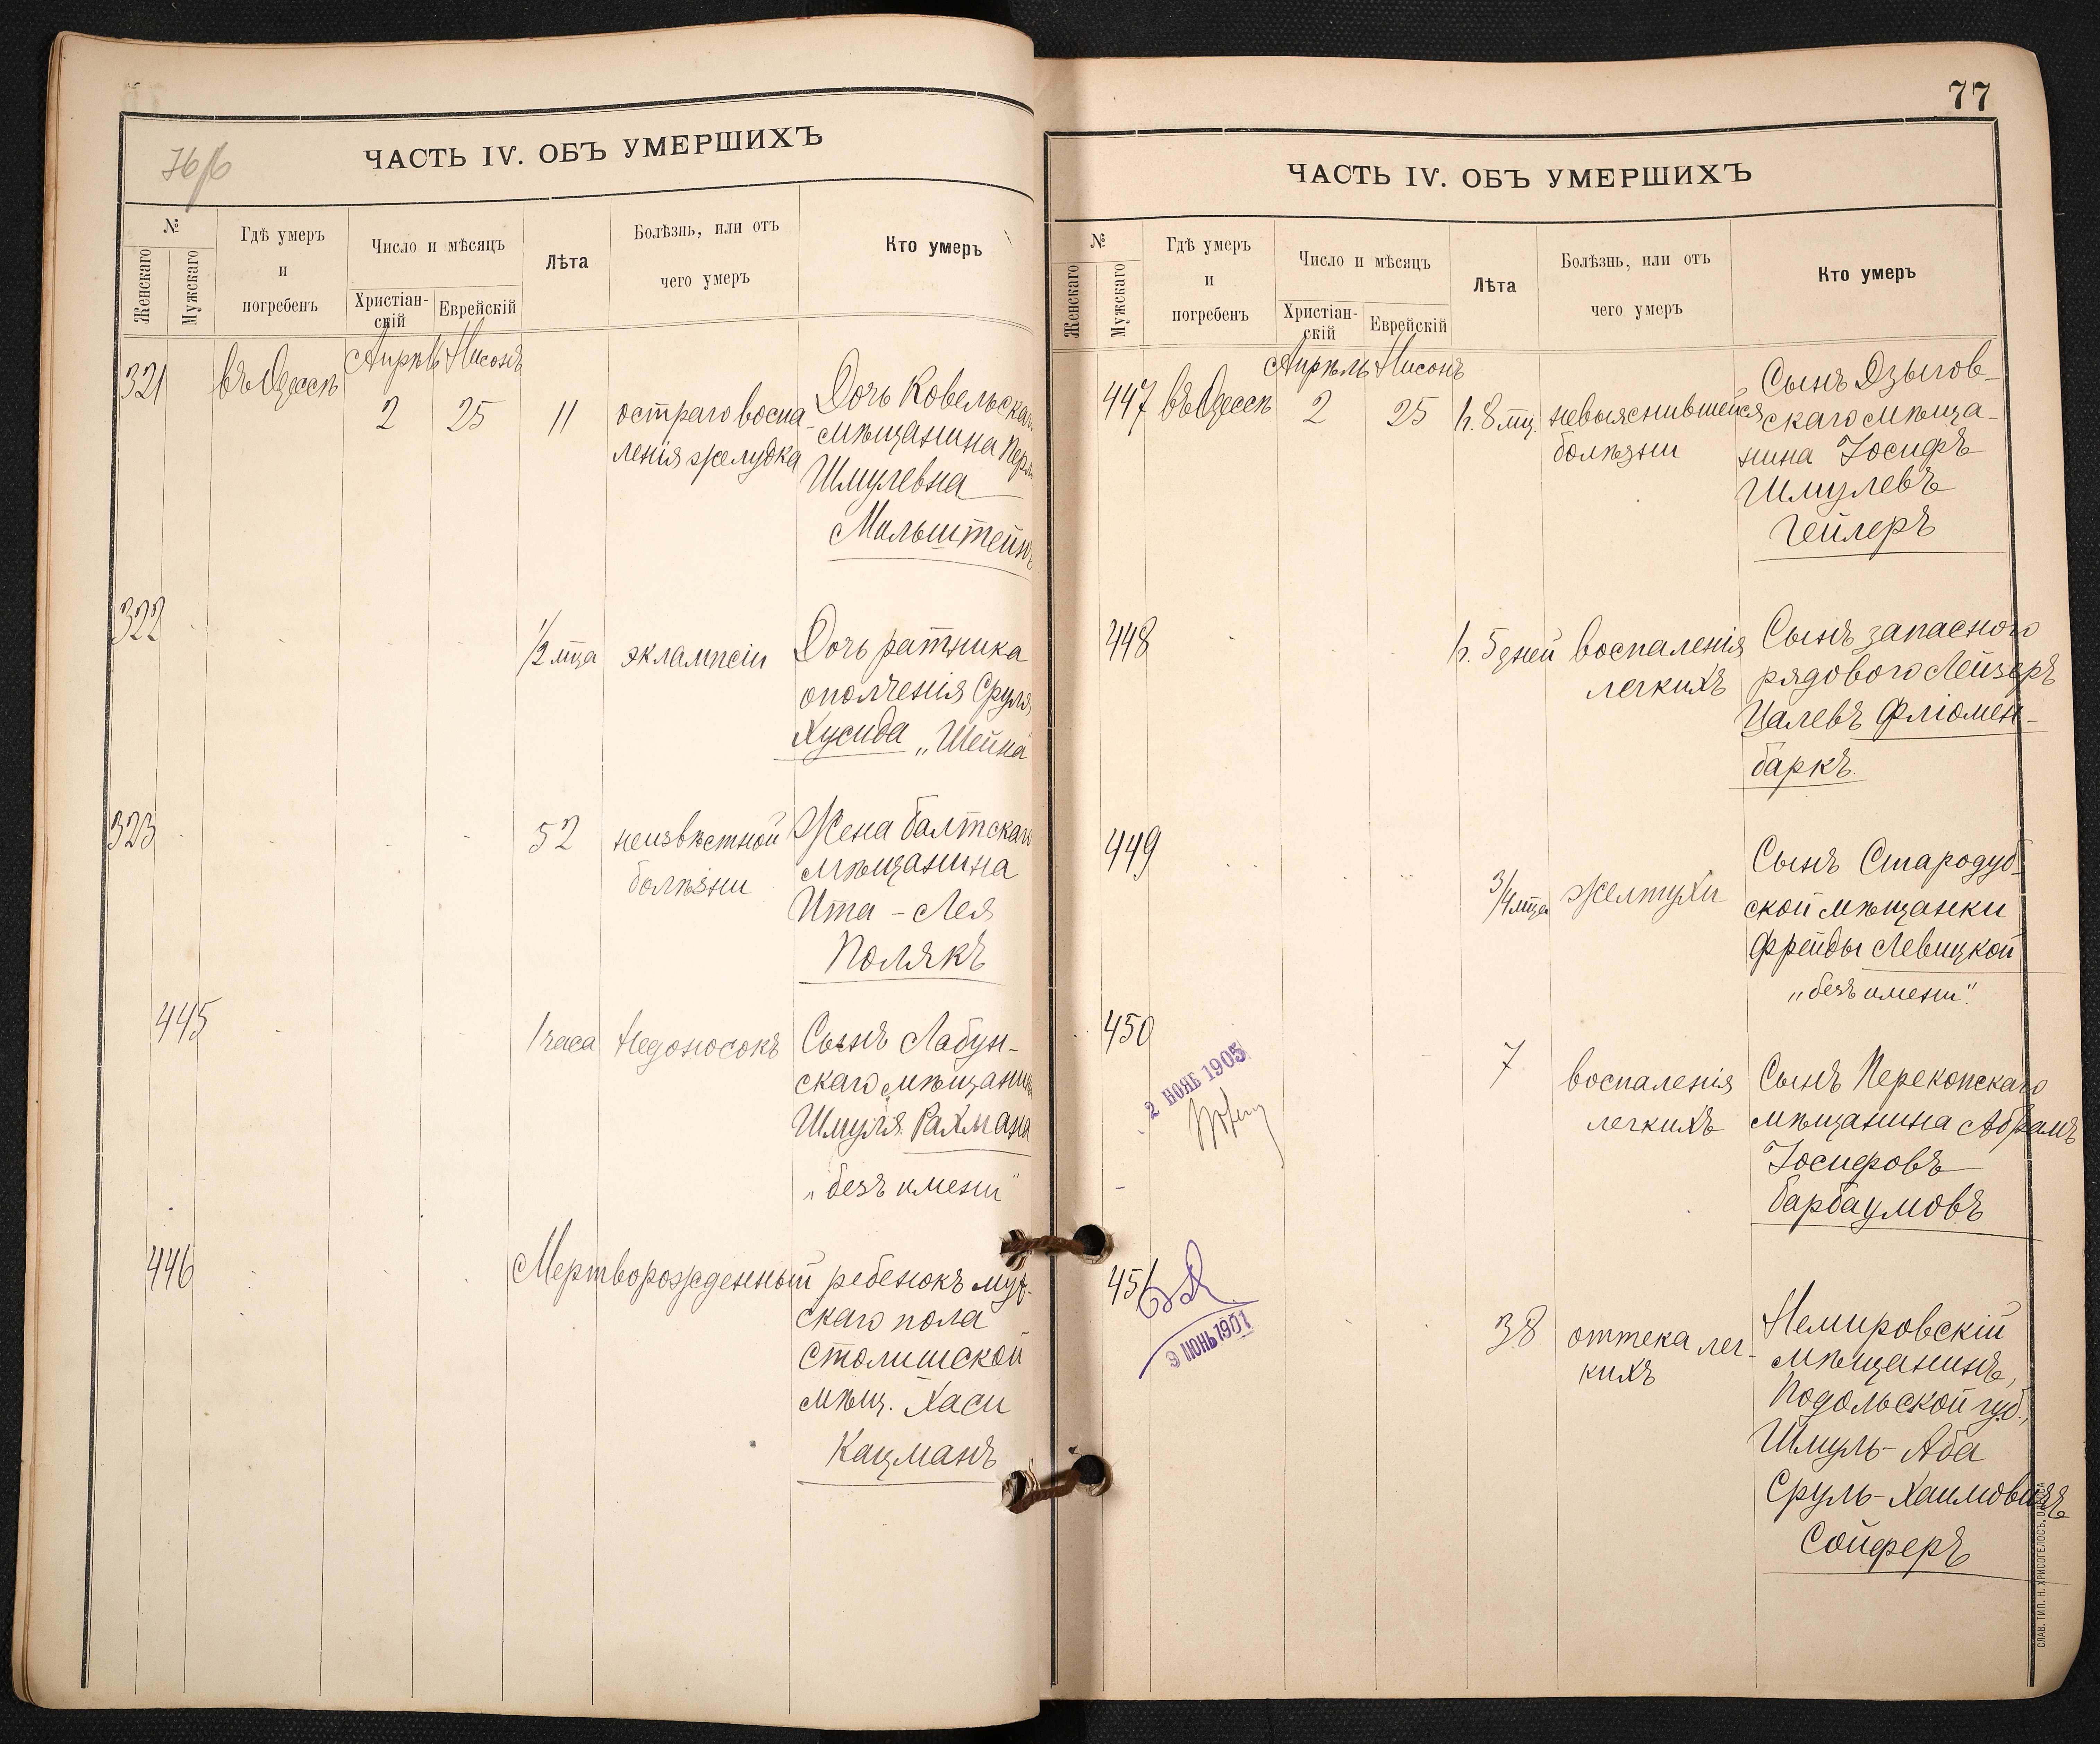 76/б
ЧАСТЬ IV. ОБЪ УМЕРШИХЪ
№
Женскаго
Мужскаго
Гдѣ умеръ
и
погребенъ
Число и мѣсяцъ
Христіан-
скій
Еврейскій
Лѣта
Болѣзнь, или отъ
чего умеръ
Кто умеръ
321
въ Одессѣ
Апрѣль
Нисонъ
2
25
11
остраго воспа-
ленія желудка
Дочь Ковельскаго
мѣщанина
Шмулевна
Мильштейнъ
322
1/2 мца
эклампсіи
Дочь ратника
ополченія Сруля
Хусида „Шейна"
323
52
неизвѣстной
болѣзни
Жена балтскаго
мѣщанина
Ита - Лея
Полякъ
445
1 часа
Недоносокъ
Сынъ Лабун-
скаго мѣщанина
Шмуля Рахмана
„безъ имени"
446
Мертворожденный ребенокъ муж-
скаго пола
мѣщ. Хаси
Кацманъ
77
ЧАСТЬ IV. ОБЪ УМЕРШИХЪ
№
Женскаго
Мужскаго
Гдѣ умеръ
и
погребенъ
Число и мѣсяцъ
Христіан-
скій
Еврейскій
Лѣта
Болѣзнь, или отъ
чего умеръ
Кто умеръ
447
въ Одессѣ
Апрѣль
Нисонъ
2
25
1 г. 8 мц.
невыяснившейся
болѣзни
Сынъ Дзыгов-
скаго мѣща-
нина Іосифъ
Шмулевъ
Гейлеръ
448
1 г. 5 дней
воспаленія
легкихъ
Сынъ запаснаго
рядового Лейзеръ
Цалевъ Фліомен-
баркъ.
449
3/4 мца
желтухи
Сынъ Стародуб-
ской мѣщанки
Фрейды Левицкой
„безъ имени".
450
2 НОЯБ 1905
7
воспаленія
легкихъ
Сынъ Перекопскаго
мѣщанина Абрамъ
Іосифовъ
Барбаумовъ
451
9 ІЮНЬ 1901
38
оттека лег-
кихъ
Немировскій
мѣщанинъ,
Подольской губ.,
Шмуль - Аба
Сруль - Хаимовичъ
Сойферъ
СЛАВ. ТИП. Н. ХРИСОГЕЛОСЪ, ОДЕССА